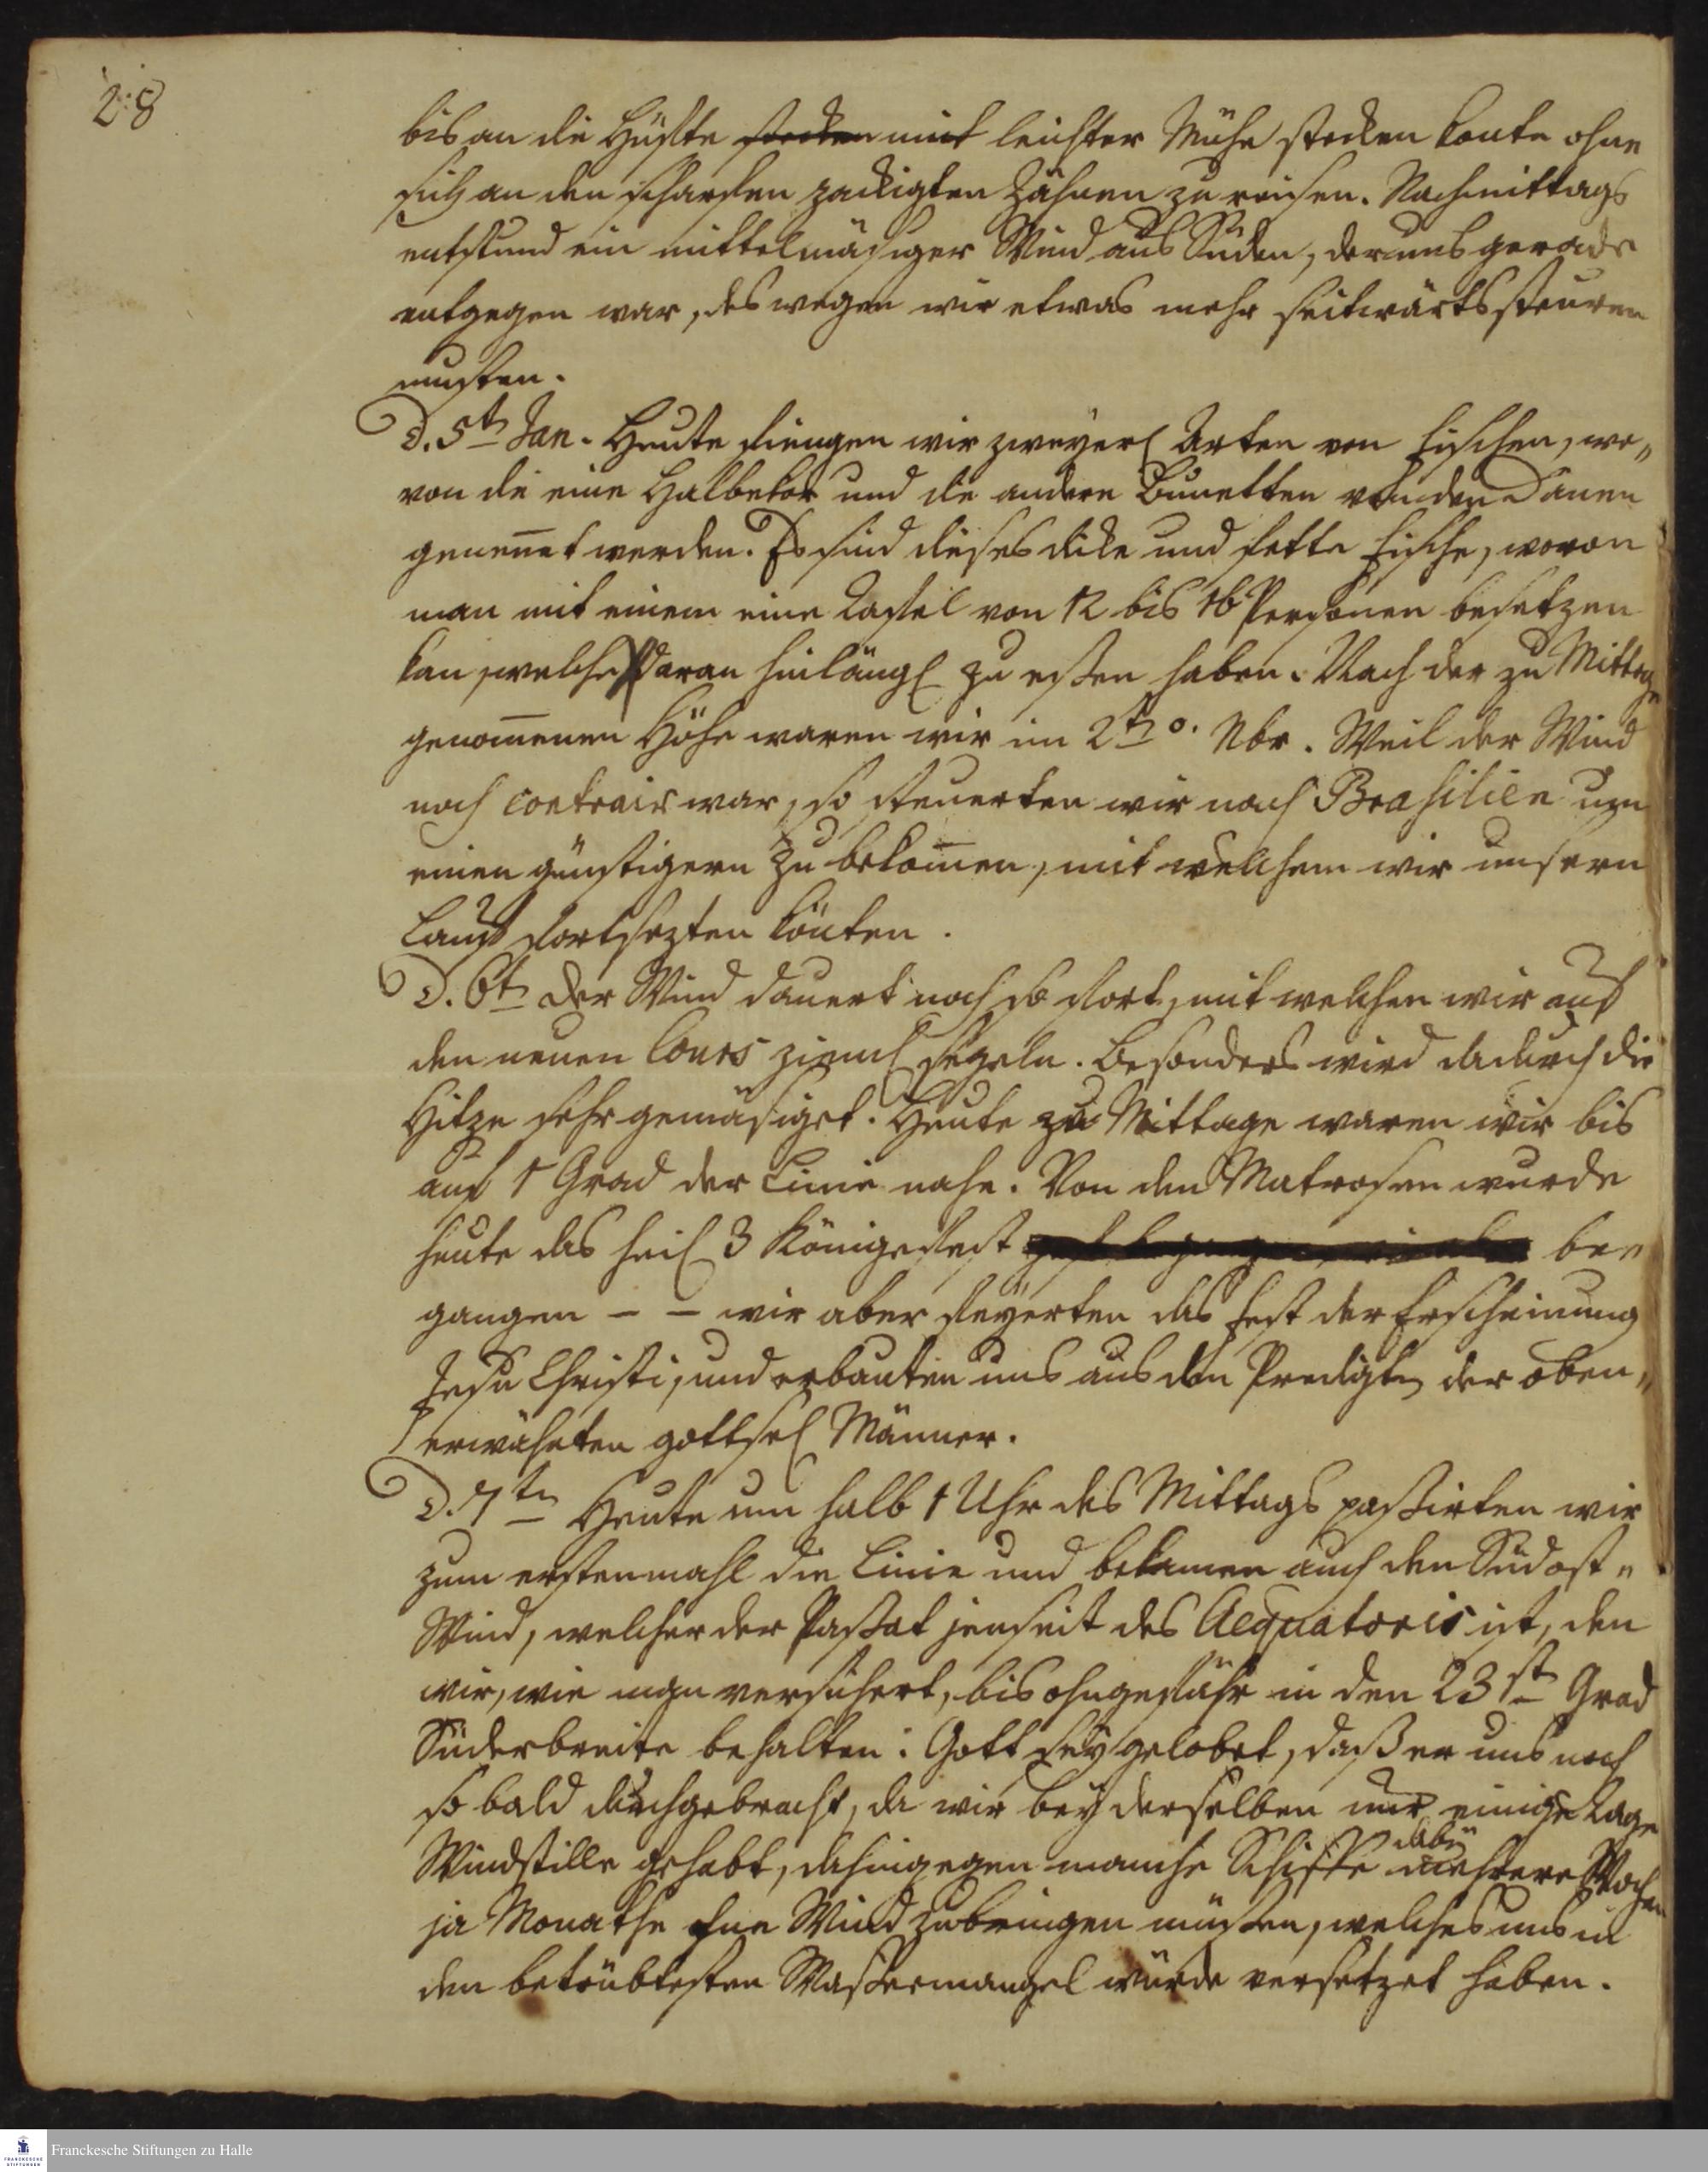 28
bis an die Hüfte stecken mit leichter Mühe stecken konte ohne
sich an den scharfen zackigten Zähnen zu reisen. Nachmittags
entstund ein mittelmäsiger Wind aus Süden, der uns gerade
entgegen war, deswegen wir etwas mehr seitwärts steuren
musten.
D. 5tn Jan. Heute fiengen wir zweyerl Arten von Fischen, wo„
von die eine Halbekor und die andere Bunetten von den Dänen
genennet werden. Es sind dieses dicke und fette Fische, wovon
man mit einem eine Taffel von 12 bis 16 Personen besetzen
kan, welche daran hinlängl zu essen haben. Nach der zu Mittage
genommenen Höhe waren wir im 2tn °. Nbr. Weil der Wind
noch contrair war, so steuerten wir nach Brasilien um
einen günstigern zu bekommen, mit welchem wir unsern
Lauf fortsezten könten.
D. 6tn Der Wind dauert noch so fort, mit welchen wir auf
den neuen Cours zieml segeln. Besonders wird dadurch die
Hitze sehr gemäsiget. Heute zu Mittage waren wir bis
auf 1 Grad der Linie nahe. Von den Matrosen wurde
heute das heil 3 Königefest be„
gangen – – wir aber feyerten das Fest der Erscheinung
Jesu Christi, und erbauten uns aus den Predigten der oben„
erwähnten gottsel Männer.
D. 7tn Heute um halb 1 Uhr des Mittags passirten wir
zum erstenmahl die Linie und bekamen auch den Südost„
Wind, welcher der Passat jenseit des Aequatoris ist, den
wir, wie man versichert, bis ohngefähr in den 23st Grad
Süderbreite behalten. Gott sey gelobet, daß er uns noch
so bald durchgebracht, da wir bey derselben nur einige Tage
Windstille gehabt, dahingegen manche Schiffe dabey mehrere Wochen
ja Monathe ohne Wind zubringen müssen, welches uns in
den betrübtesten Wassermangel würde versetzet haben.
Franckesche Stiftungen zu Halle